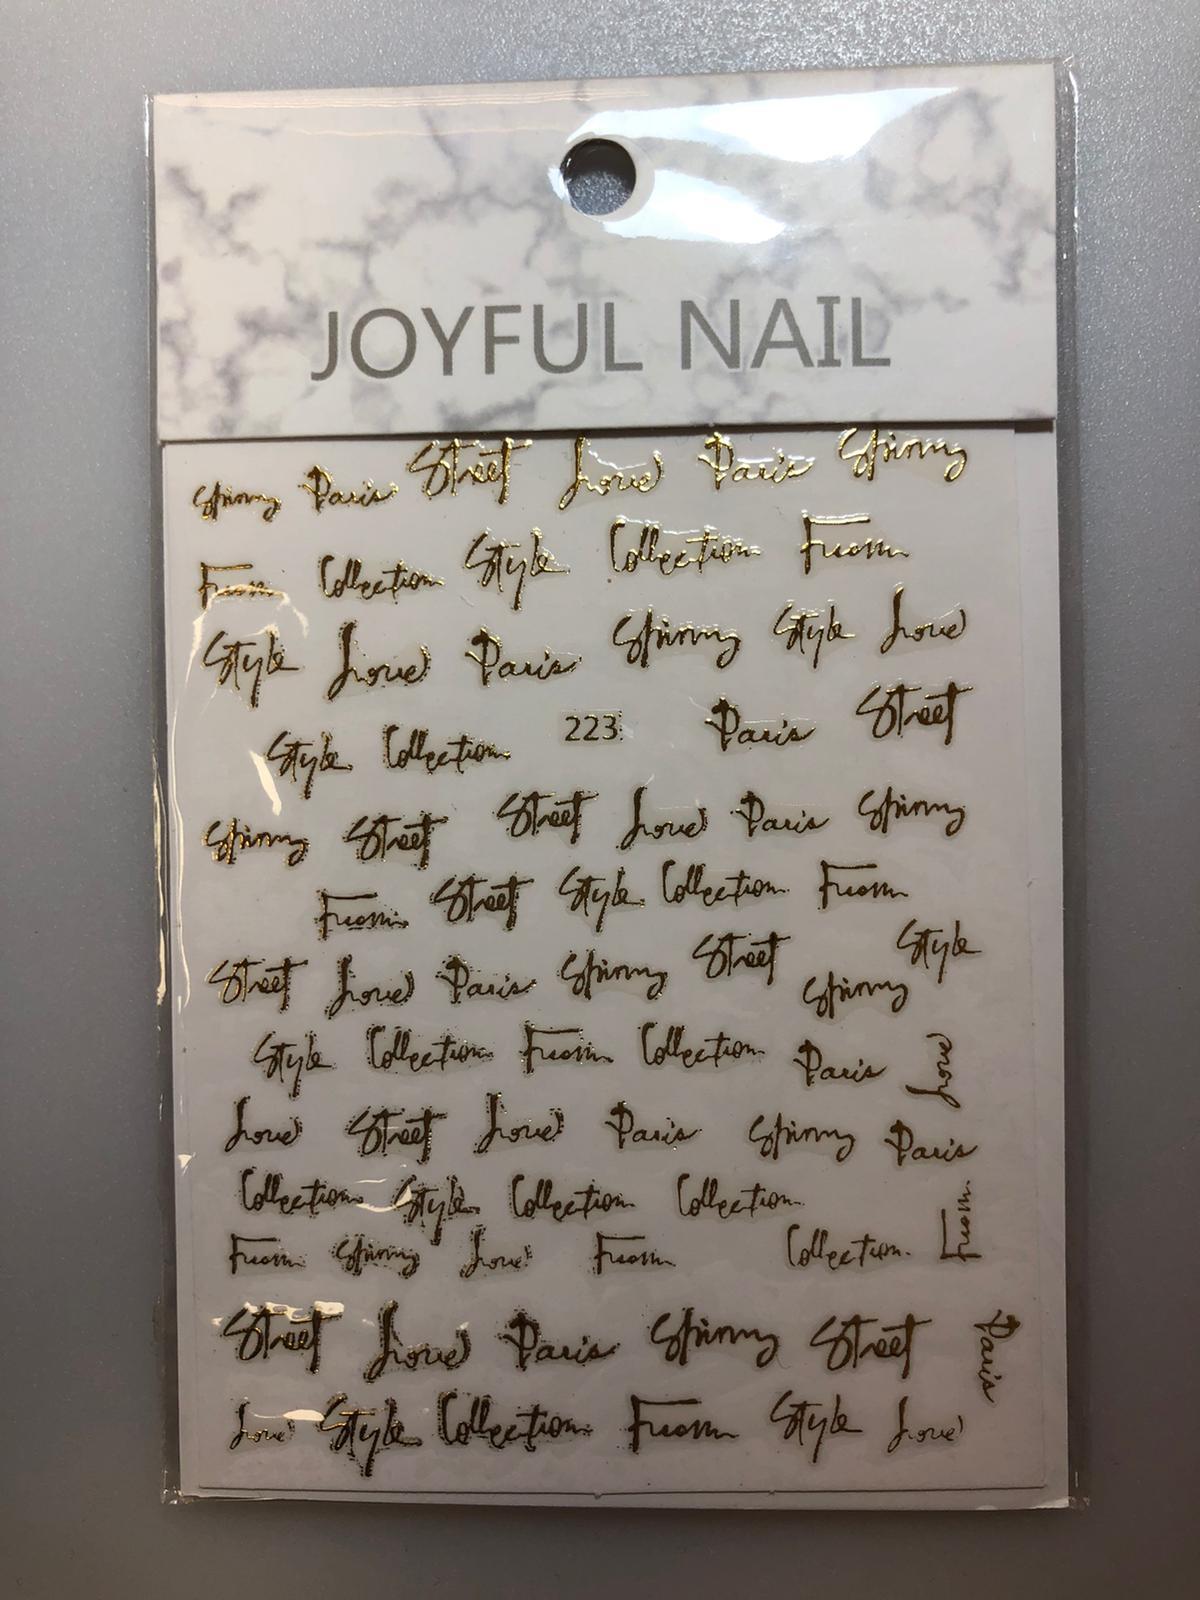 JOYFUL NAIL
Spinny Paris Street Love Paris Spinny
From Collection Style Collection From
Style Love Paris Spinny Style Love
Style Collection 223 Paris Street
Spinny Street Street Love Paris Spinny
From Street Style Collection From
Street Love Paris Spinny Street Spinny Style
Style Collection From Collection Paris Love
Love Street Love Paris Spinny Paris
Collection Style Collection Collection
From Spinny Love From Collection From
Street Love Paris Spinny Street Paris
Love Style Collection From Style Love